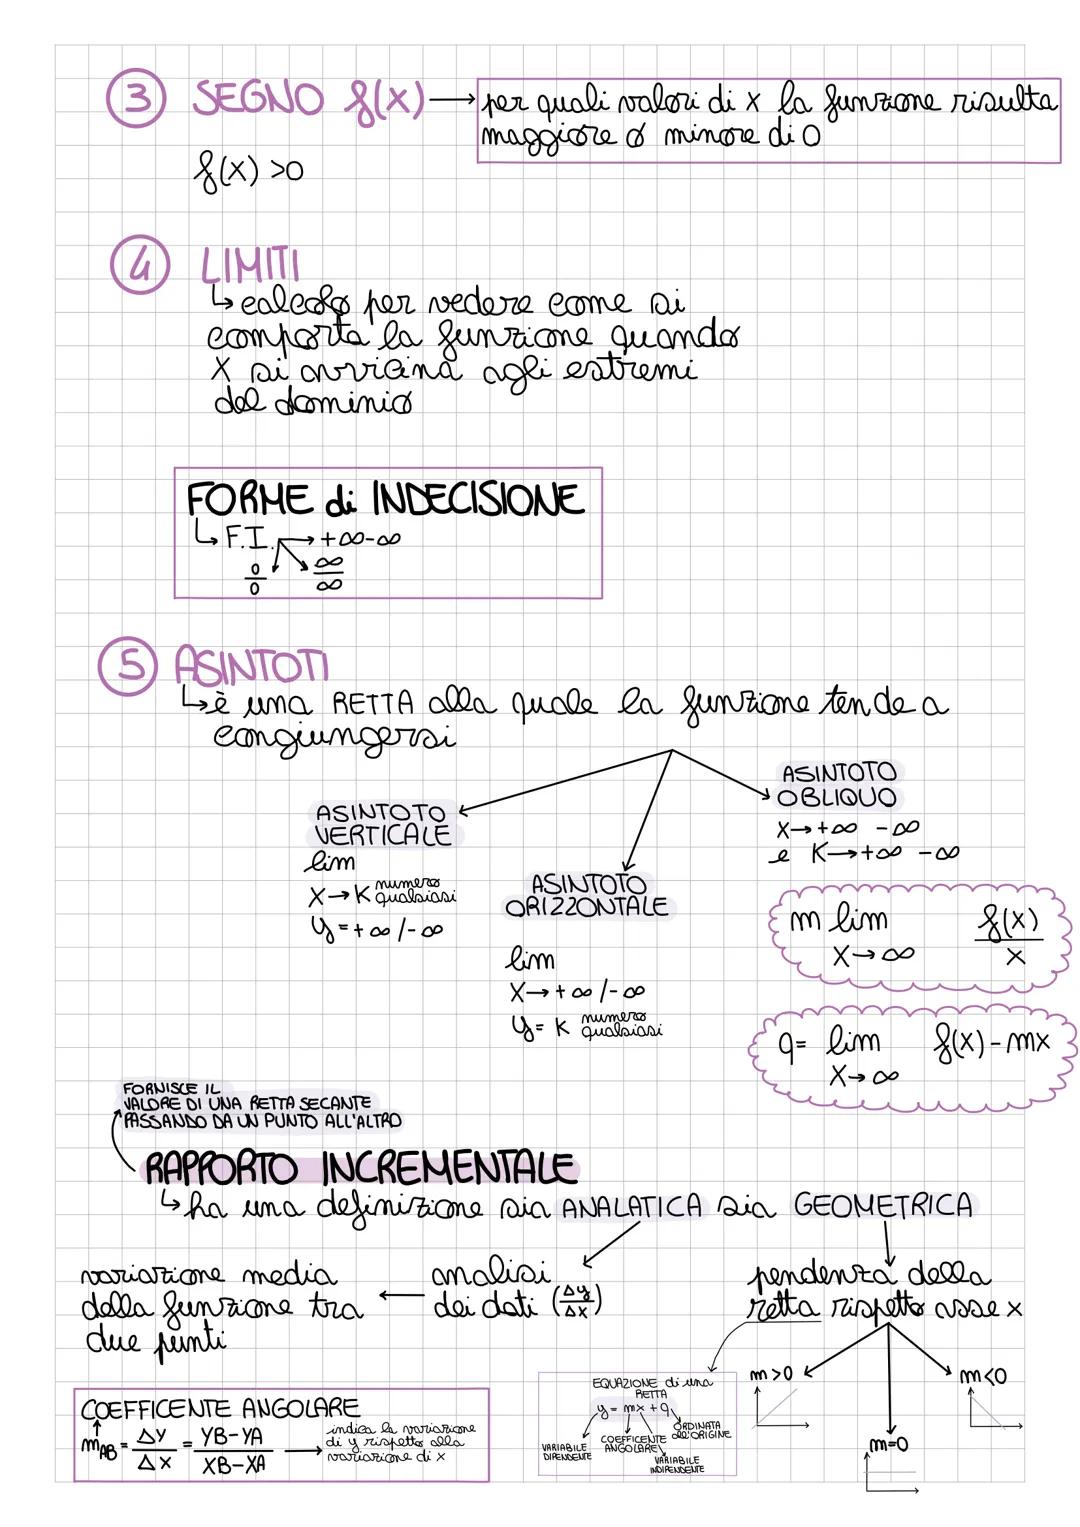 3 SEGNO f(x) → per quali valori di x la funzione risulta
maggiore o minore di 0
f(x) >0
4 LIMITI
↳ calcolo per vedere come si
comporta la funzione quando
x si avvicina agli estremi
del dominio
FORME di INDECISIONE
↳ F.I. → +∞-∞
0/0 ∞/∞
5 ASINTOTI
↳ è una RETTA alla quale la funzione tende a
congiungersi
ASINTOTO
VERTICALE
lim
x→K numero qualsiasi
y=+∞/-∞
ASINTOTO
ORIZZONTALE
lim
x→+∞/-∞
y=K numero qualsiasi
ASINTOTO
OBLIQUO
x→+∞ -∞
e K→+∞ -∞
m lim f(x)/x
x→∞
q= lim f(x)-mx
x→∞
FORNISCE IL
VALORE DI UNA RETTA SECANTE
PASSANDO DA UN PUNTO ALL'ALTRO
RAPPORTO INCREMENTALE
↳ ha una definizione sia ANALATICA sia GEOMETRICA
variazione media
della funzione tra
due punti
analisi
dei dati (Δy/Δx)
pendenza della
retta rispetto asse x
m>0
m<0
m=0
COEFFICENTE ANGOLARE
mAB = Δy/Δx = YB-YA/XB-XA →
indica la variazione
di y rispetto alla
variazione di x
EQUAZIONE di una
RETTA
y = mx + q
VARIABILE
DIPENDENTE
COEFFICENTE
ANGOLARE
VARIABILE
INDIPENDENTE
ORDINATA
all'ORIGINE